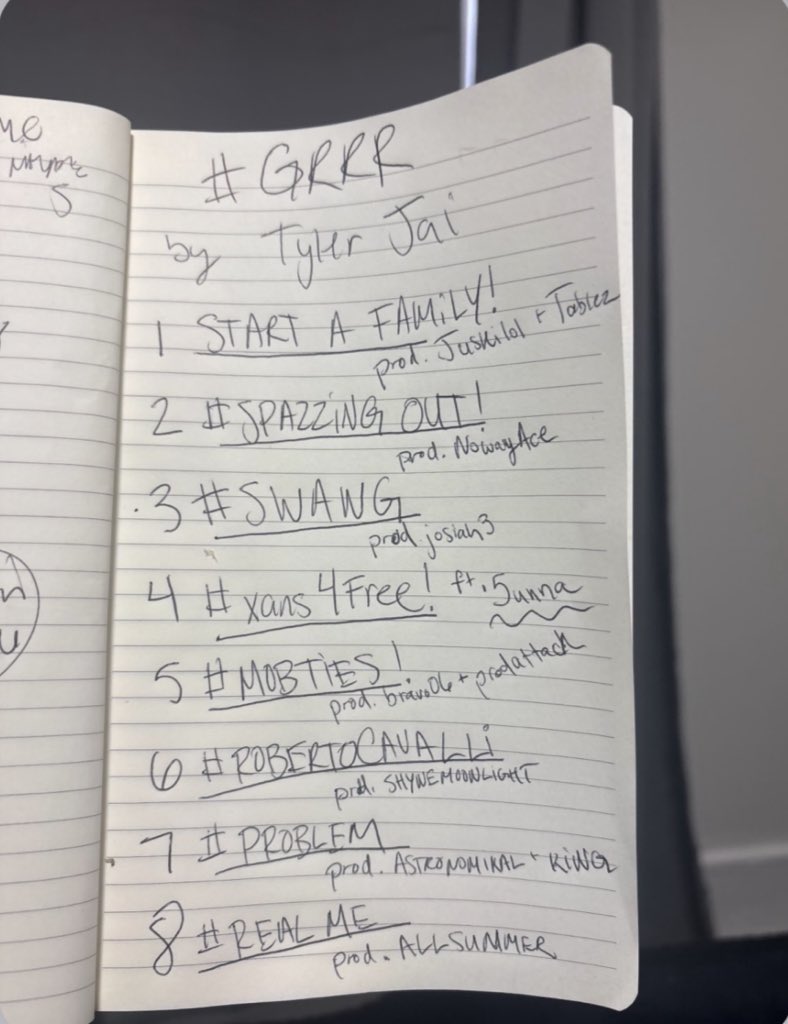 # GRRR
by Tyler Jai
1 START A FAMiLY!
prod. Juskilol + Tablez
2 #SPAZZiNG OUT!
prod. NowayAce
3 #SWAWG
prod. josiah3
4 # xans 4 Free! ft. 5unna
5 #MOBTiES!
prod. bravo06 + prodattack
6 #ROBERTOCAVALLi
prod. SHYNEMOONLIGHT
7 # PROBLEM
prod. ASTRONOMINAL + KiNG
8 #REAL ME
prod. ALLSUMMER